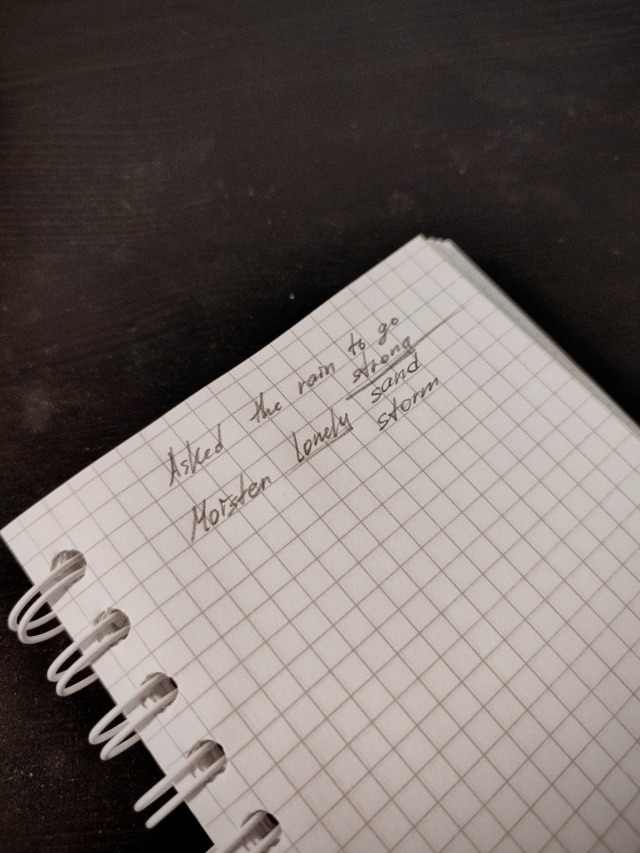 Asked the rain to go
strong
Moisten lonely sand
storm